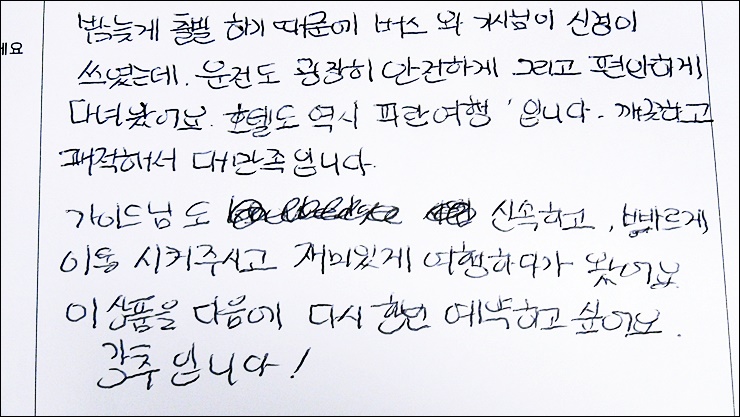 밤늦게 출발 하기 때문에 버스 와 기사님이 신경이
세요
쓰였는데. 운전도 굉장히 안전하게 그리고 편안하게
다녀왔어요. 호텔도 역시 파란여행 ' 입니다. 깨끗하고
쾌적해서 대만족입니다.
가이드님 도 신속하고, 빠르게
이동 시켜주시고 재미있게 여행하다가 왔어요
이 상품을 다음에 다시 한번 예약하고 싶어요.
강추입니다!